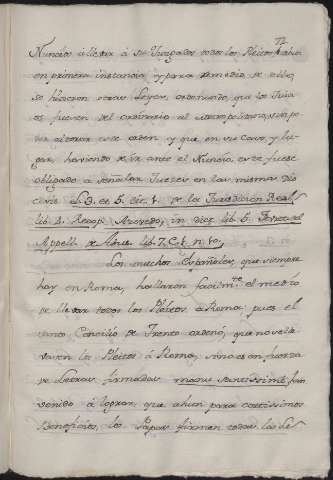 72
Nuncios á llevar á su Juzgado todos los Pleitos
en primera instancia, y para remedio de ello,
se hicieron varias Leyes, ordenando, que los Jui
cios fuesen del ordinario al Metropolitano, sin po
der alterar este orden y que en su caso, y lu
gar, haviendo de ir ante el Nuncio, este fuese
obligado á señalar Jueces en las mismas Dio
cesis. L. 3. et 5. tit. 1. de la Jurisdicion Real
lib. 4. Recop. Azevedo, in dict. lib. 5.
Appell. de lib. 7. C. 1. n. 10.
Los muchos Españoles, que siempre
hay en Roma, hallaron facilm.te el medio
de llevar todos los Pleitos á Roma, pues el
santo Concilio de Trento ordenó, que no se lle
vasen los Pleitos á Roma, sino es en fuerza
de Letras firmadas manu Santissimi, han
venido á lograr, que ahun para cortissimos
Beneficios, los Papas firmen todas las de